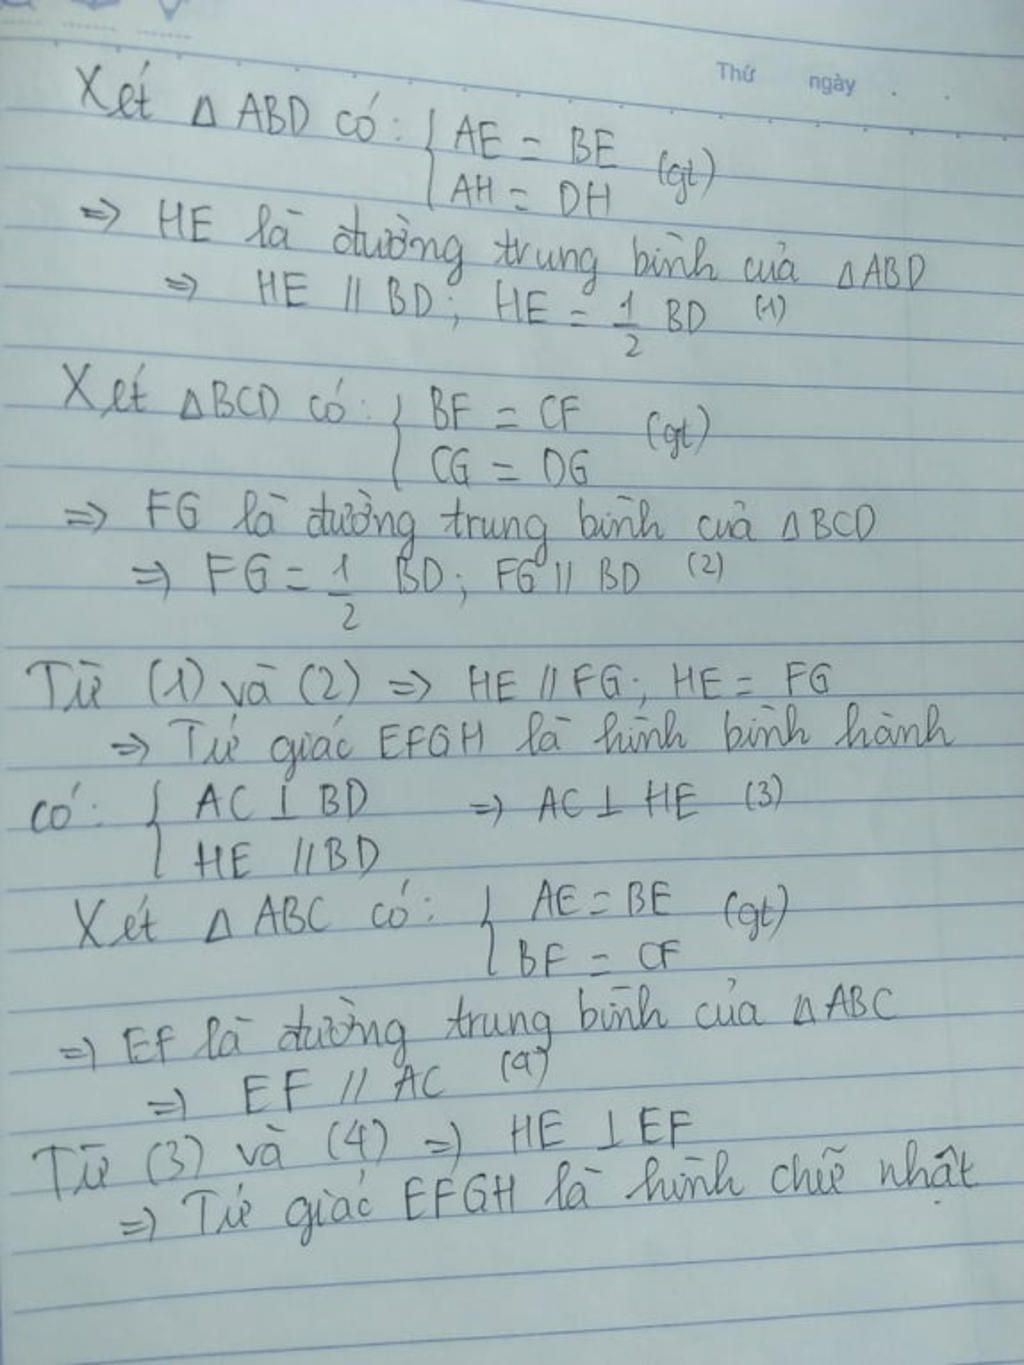 Thứ ngày . .
Xét Δ ABD có: { AE = BE (gt)
AH = DH
=> HE là đường trung bình của Δ ABD
=> HE // BD; HE = 1/2 BD (1)
Xét Δ BCD có: { BF = CF (gt)
CG = DG
=> FG là đường trung bình cuả Δ BCD
=> FG = 1/2 BD; FG // BD (2)
Từ (1) và (2) => HE // FG; HE = FG
=> Tứ giác EFGH là hình bình hành
có: { AC ⊥ BD => AC ⊥ HE (3)
HE // BD
Xét Δ ABC có: { AE = BE (gt)
BF = CF
=> EF là đường trung bình của Δ ABC
=> EF // AC (4)
Từ (3) và (4) => HE ⊥ EF
=> Tứ giác EFGH là hình chữ nhật